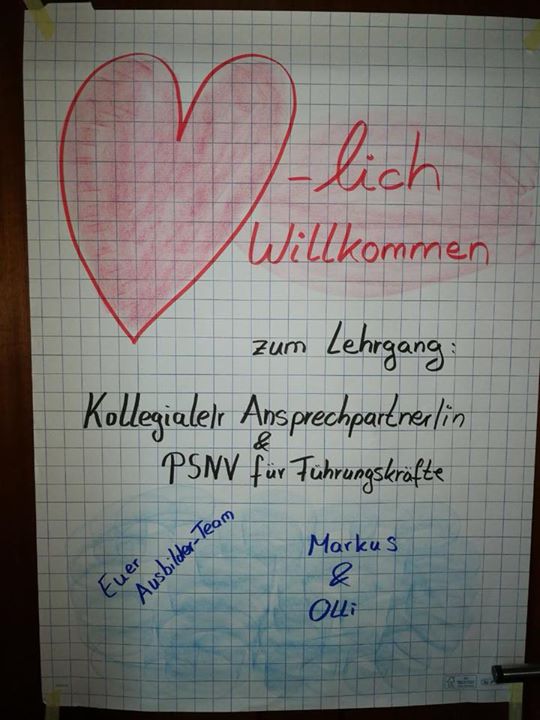 -lich
Willkommen
zum Lehrgang:
Kollegiale/r Ansprechpartner/in
&
PSNV für Führungskräfte
Euer
Ausbilder-Team
Markus
&
Olli